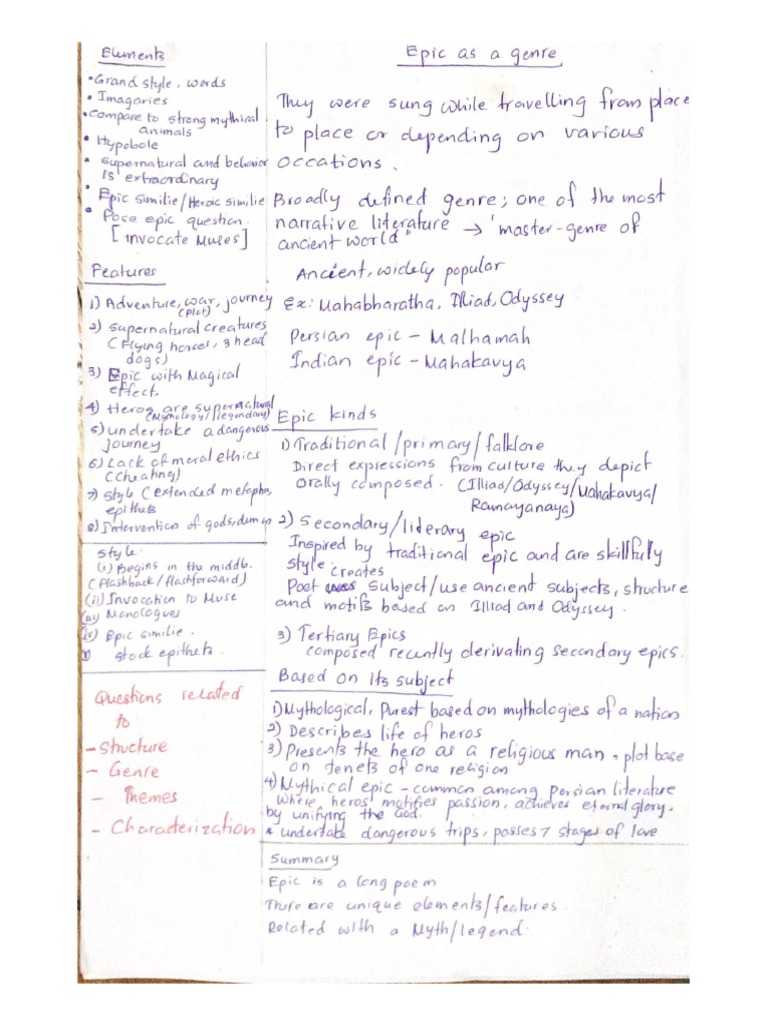 Elements
• Grand style, words
• Imagaries
• Compare to strong mythical
animals
• Hypobole
• Supernatural and behavior
is extraordinary
• Epic similie/Heroic similie
• Pose epic question.
[invocate Muses]
Features
1) Adventure, war, journey
(plot)
2) Supernatural creatures
(Flying horces, 3 head
dogs)
3) Epic with Magical
effect.
4) Heros are supernatural
5) undertake a dangerous
journey
6) Lack of moral ethics
(cheating)
7) Style (extended metaphor,
epithets
8) Intervention of gods,
Style.
(i) Begins in the middle.
(Flashback/flashforward)
(ii) Invocation to Muse
(iii) Monologues
iv) Epic similie.
v) stock epithets.
Questions related
to
- Structure
- Genre
- Themes
- Characterization
Epic as a genre
They were sung while travelling from place
to place or depending on various
occations.
Broadly defined genre; one of the most
narrative literature → 'master-genre of
ancient world"
Ancient, widely popular
Ex: Mahabharatha, Illiad, Odyssey
Persian epic - Malhamah
Indian epic - Mahakavya
Epic kinds
1) Traditional/primary/falklore
Direct expressions from culture they depict
orally composed. (Illiad/Odyssey/Mahakavya/
Ramayanaya)
2) Secondary/literary epic
Inspired by traditional epic and are skillfully
style creates
Poet subject/use ancient subjects, structure
and motifs based on Illiad and Odyssey.
3) Tertiary Epics
composed recently derivating secondary epics.
Based on its subject
1) Mythological, Purest based on mythologies of a nation
2) Describes life of heros
3) Presents the hero as a religious man, plot base
on tenets of one religion
4) Mythical epic - common among Persian literature
where, heros motifies passion, achieves eternal glory,
by unifying the God.
* undertake dangerous trips, passes 7 stages of love
Summary
Epic is a long poem
There are unique elements/features.
Related with a Myth/legend.